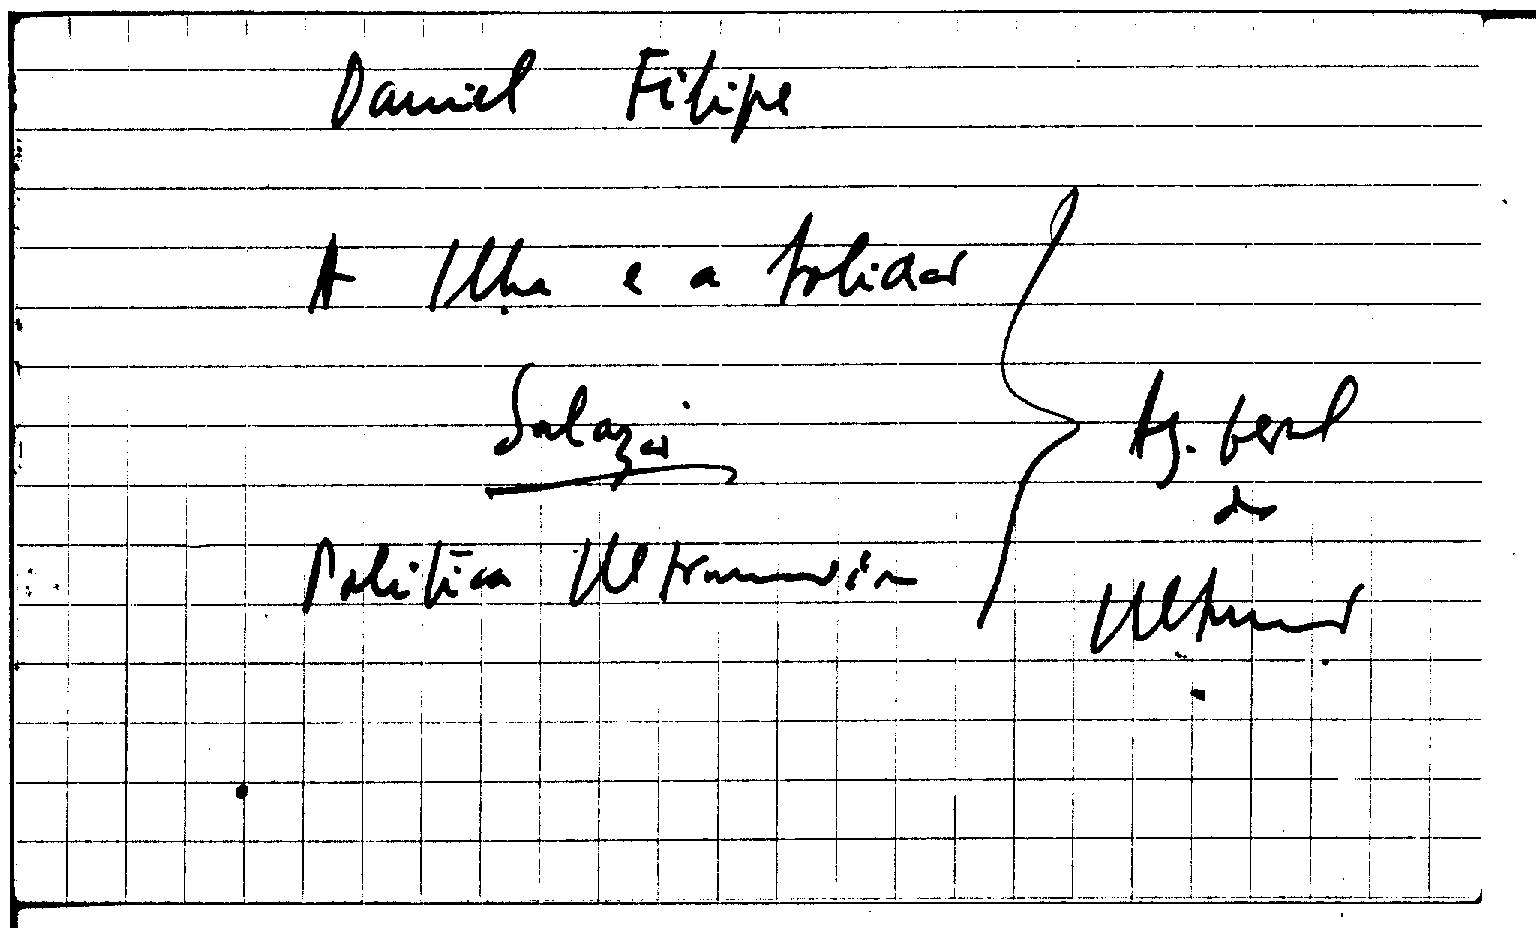 Daniel Filipe
A Ilha e a Solidão
Salazar
Política Ultramarina
Ag. Geral
do
Ultramar